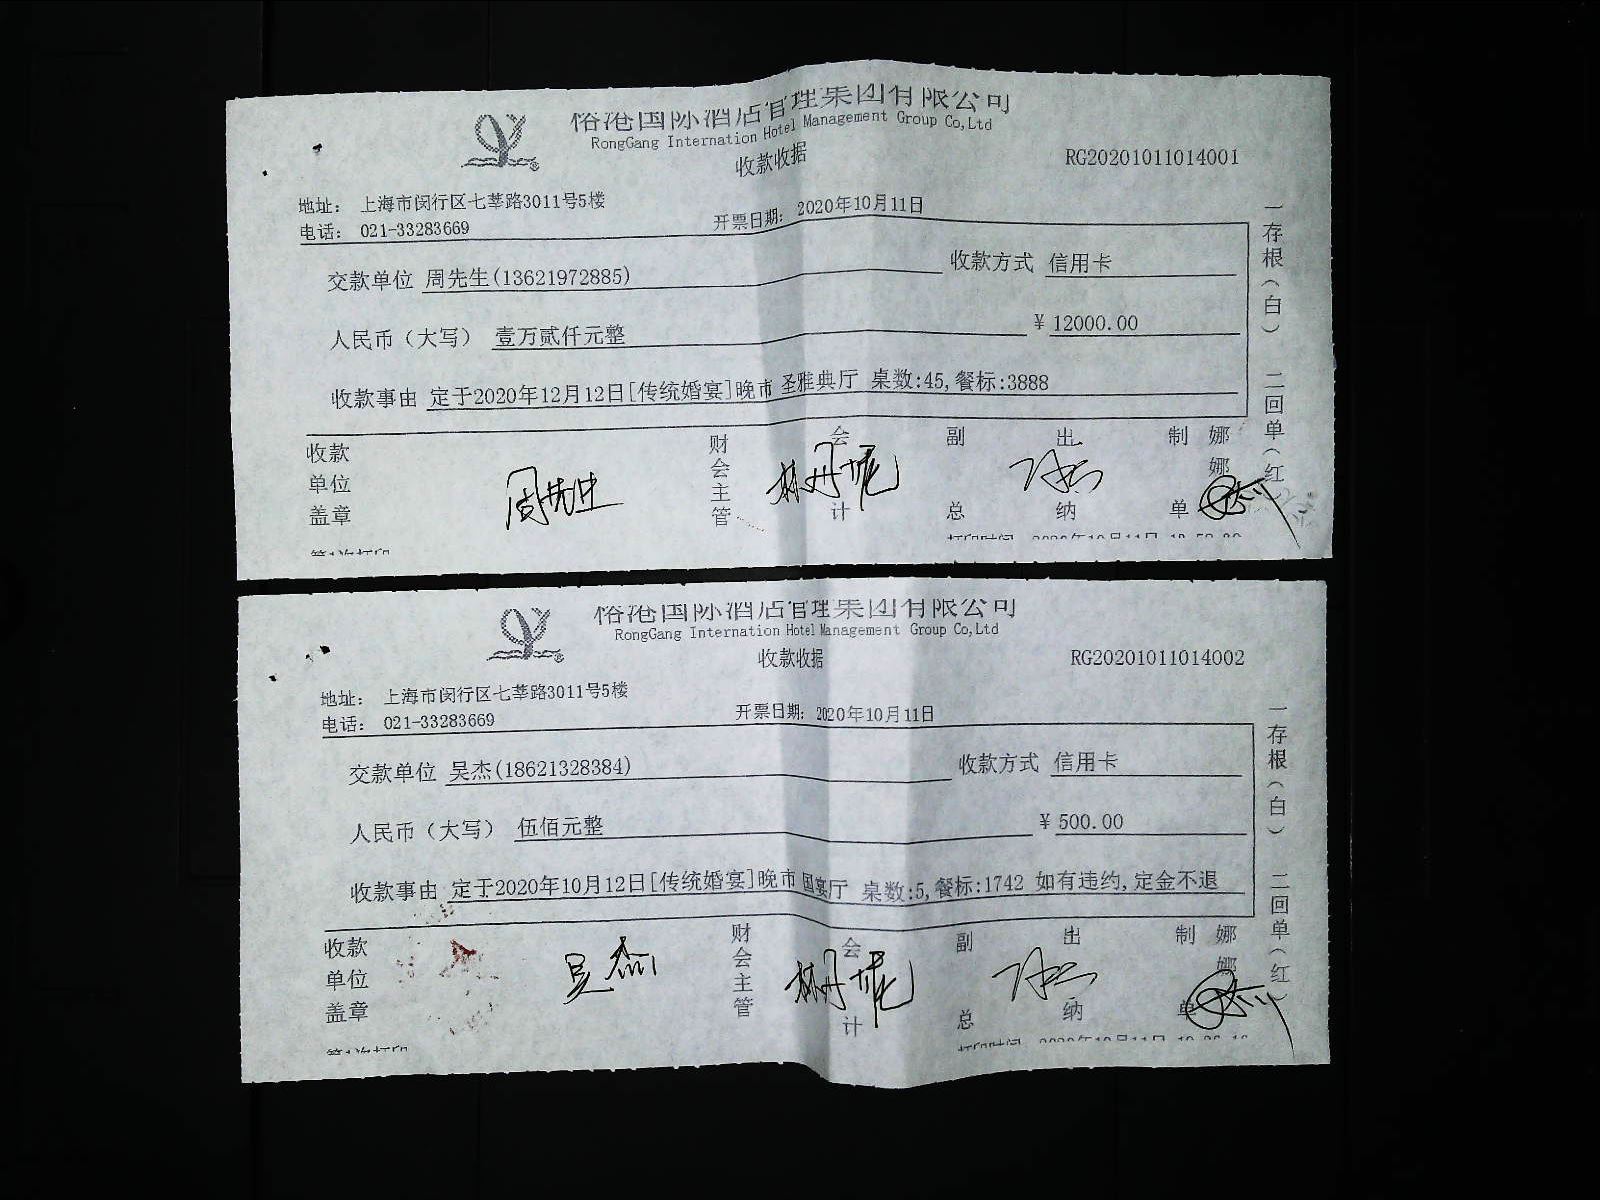 裕港国际酒店管理集团有限公司
RongGang Internation Hotel Management Group Co,Ltd
收款收据
RG20201011014001
地址： 上海市闵行区七莘路3011号5楼
电话： 021-33283669
开票日期： 2020年10月11日
交款单位 周先生(13621972885) 收款方式 信用卡
人民币（大写） 壹万贰仟元整 ￥ 12000.00
收款事由 定于2020年12月12日[传统婚宴]晚市 圣雅典厅 桌数:45,餐标:3888
收款单位盖章 周先生 财会主管 会计 副总 出纳 制单 娜娜
一存根（白） 二回单（红）
第1次打印 打印时间 2020年10月11日
裕港国际酒店管理集团有限公司
RongGang Internation Hotel Management Group Co,Ltd
收款收据
RG20201011014002
地址： 上海市闵行区七莘路3011号5楼
电话： 021-33283669
开票日期： 2020年10月11日
交款单位 吴杰(18621328384) 收款方式 信用卡
人民币（大写） 伍佰元整 ￥ 500.00
收款事由 定于2020年10月12日[传统婚宴]晚市 国宴厅 桌数:5,餐标:1742 如有违约,定金不退
收款单位盖章 吴杰 财会主管 会计 副总 出纳 制单 娜娜
一存根（白） 二回单（红）
第1次打印 打印时间 2020年10月11日